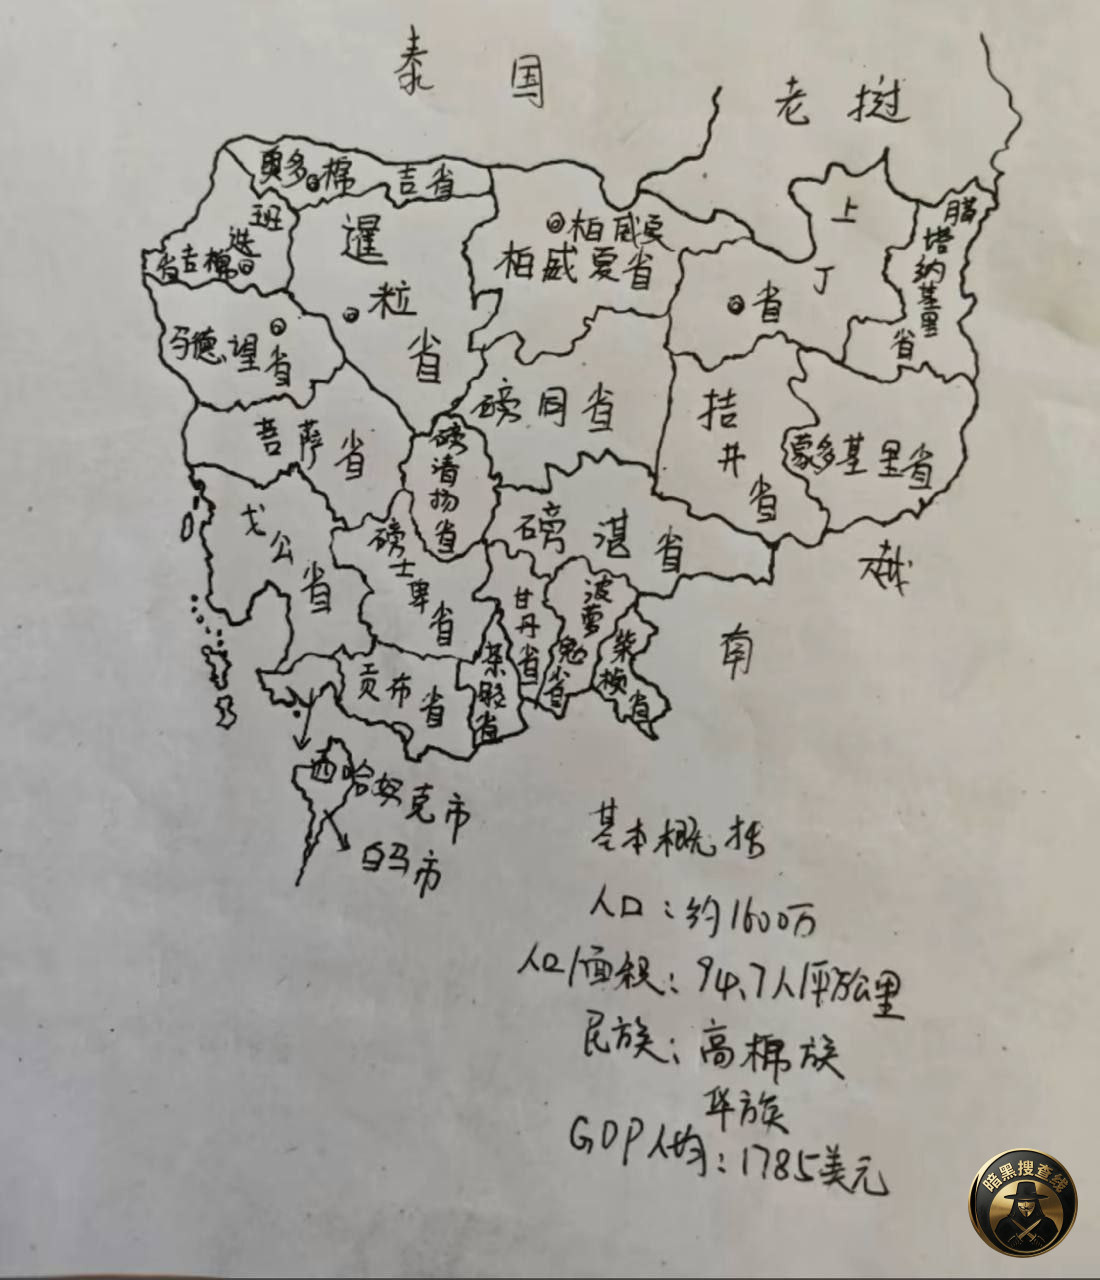 泰国
老挝
奥多棉吉省
班迭吉棉省
暹粒省
柏威夏
柏威夏省
上丁省
腊塔纳基里省
马德望省
菩萨省
磅清扬省
磅同省
拮井省
蒙多基里省
戈公省
磅士卑省
磅湛省
甘丹省
波萝勉省
柴桢省
茶胶省
贡布省
越南
西哈努克市
白马市
基本概括
人口：约1600万
人口/面积：94.7人/平方公里
民族：高棉族
华族
GDP人均：1785美元
暗黑搜查线